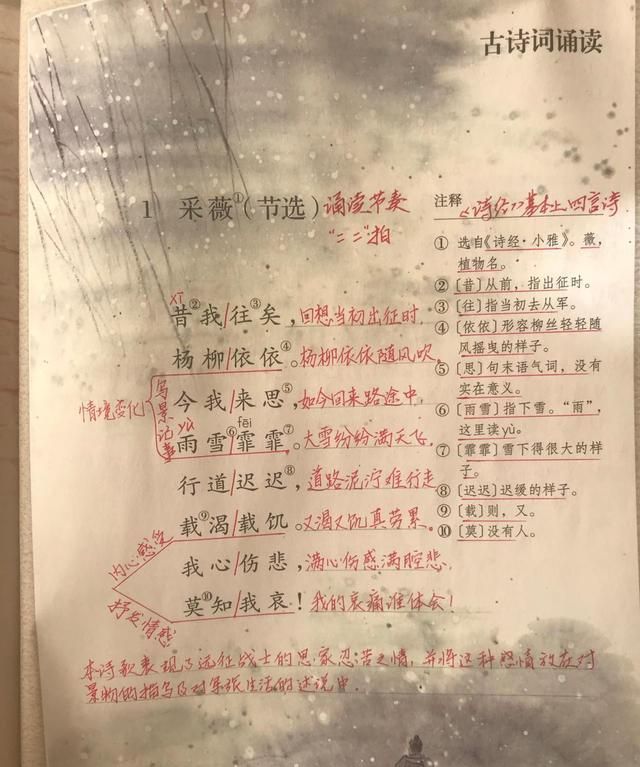 古诗词诵读
1 采薇①(节选) 诵读节奏
“二二”拍
xī
昔②我/往③矣,回想当初出征时,
杨柳/依依④。杨柳依依随风吹。
今我/来思⑤,如今回来路途中,
yù fēi
雨雪⑥/霏霏⑦。大雪纷纷满天飞,
行道/迟迟⑧,道路泥泞难行走
载⑨渴/载饥。又渴又饥真劳累。
我心/伤悲,满心伤感满腔悲,
莫⑩知/我哀!我的哀痛谁体会!
情境变化
写景记事
内心感受
抒发情感
注释 《诗经》基本上四言诗
① 选自《诗经·小雅》。薇,
植物名。
②〔昔〕从前,指出征时。
③〔往〕指当初去从军。
④〔依依〕形容柳丝轻轻随
风摇曳的样子。
⑤〔思〕句末语气词,没有
实在意义。
⑥〔雨雪〕指下雪。“雨”,
这里读yù。
⑦〔霏霏〕雪下得很大的样
子。
⑧〔迟迟〕迟缓的样子。
⑨〔载〕则,又。
⑩〔莫〕没有人。
本诗歌表现了远征战士的思家忍苦之情,并将这种感情放在对
景物的描写及对军旅生活的述说中.